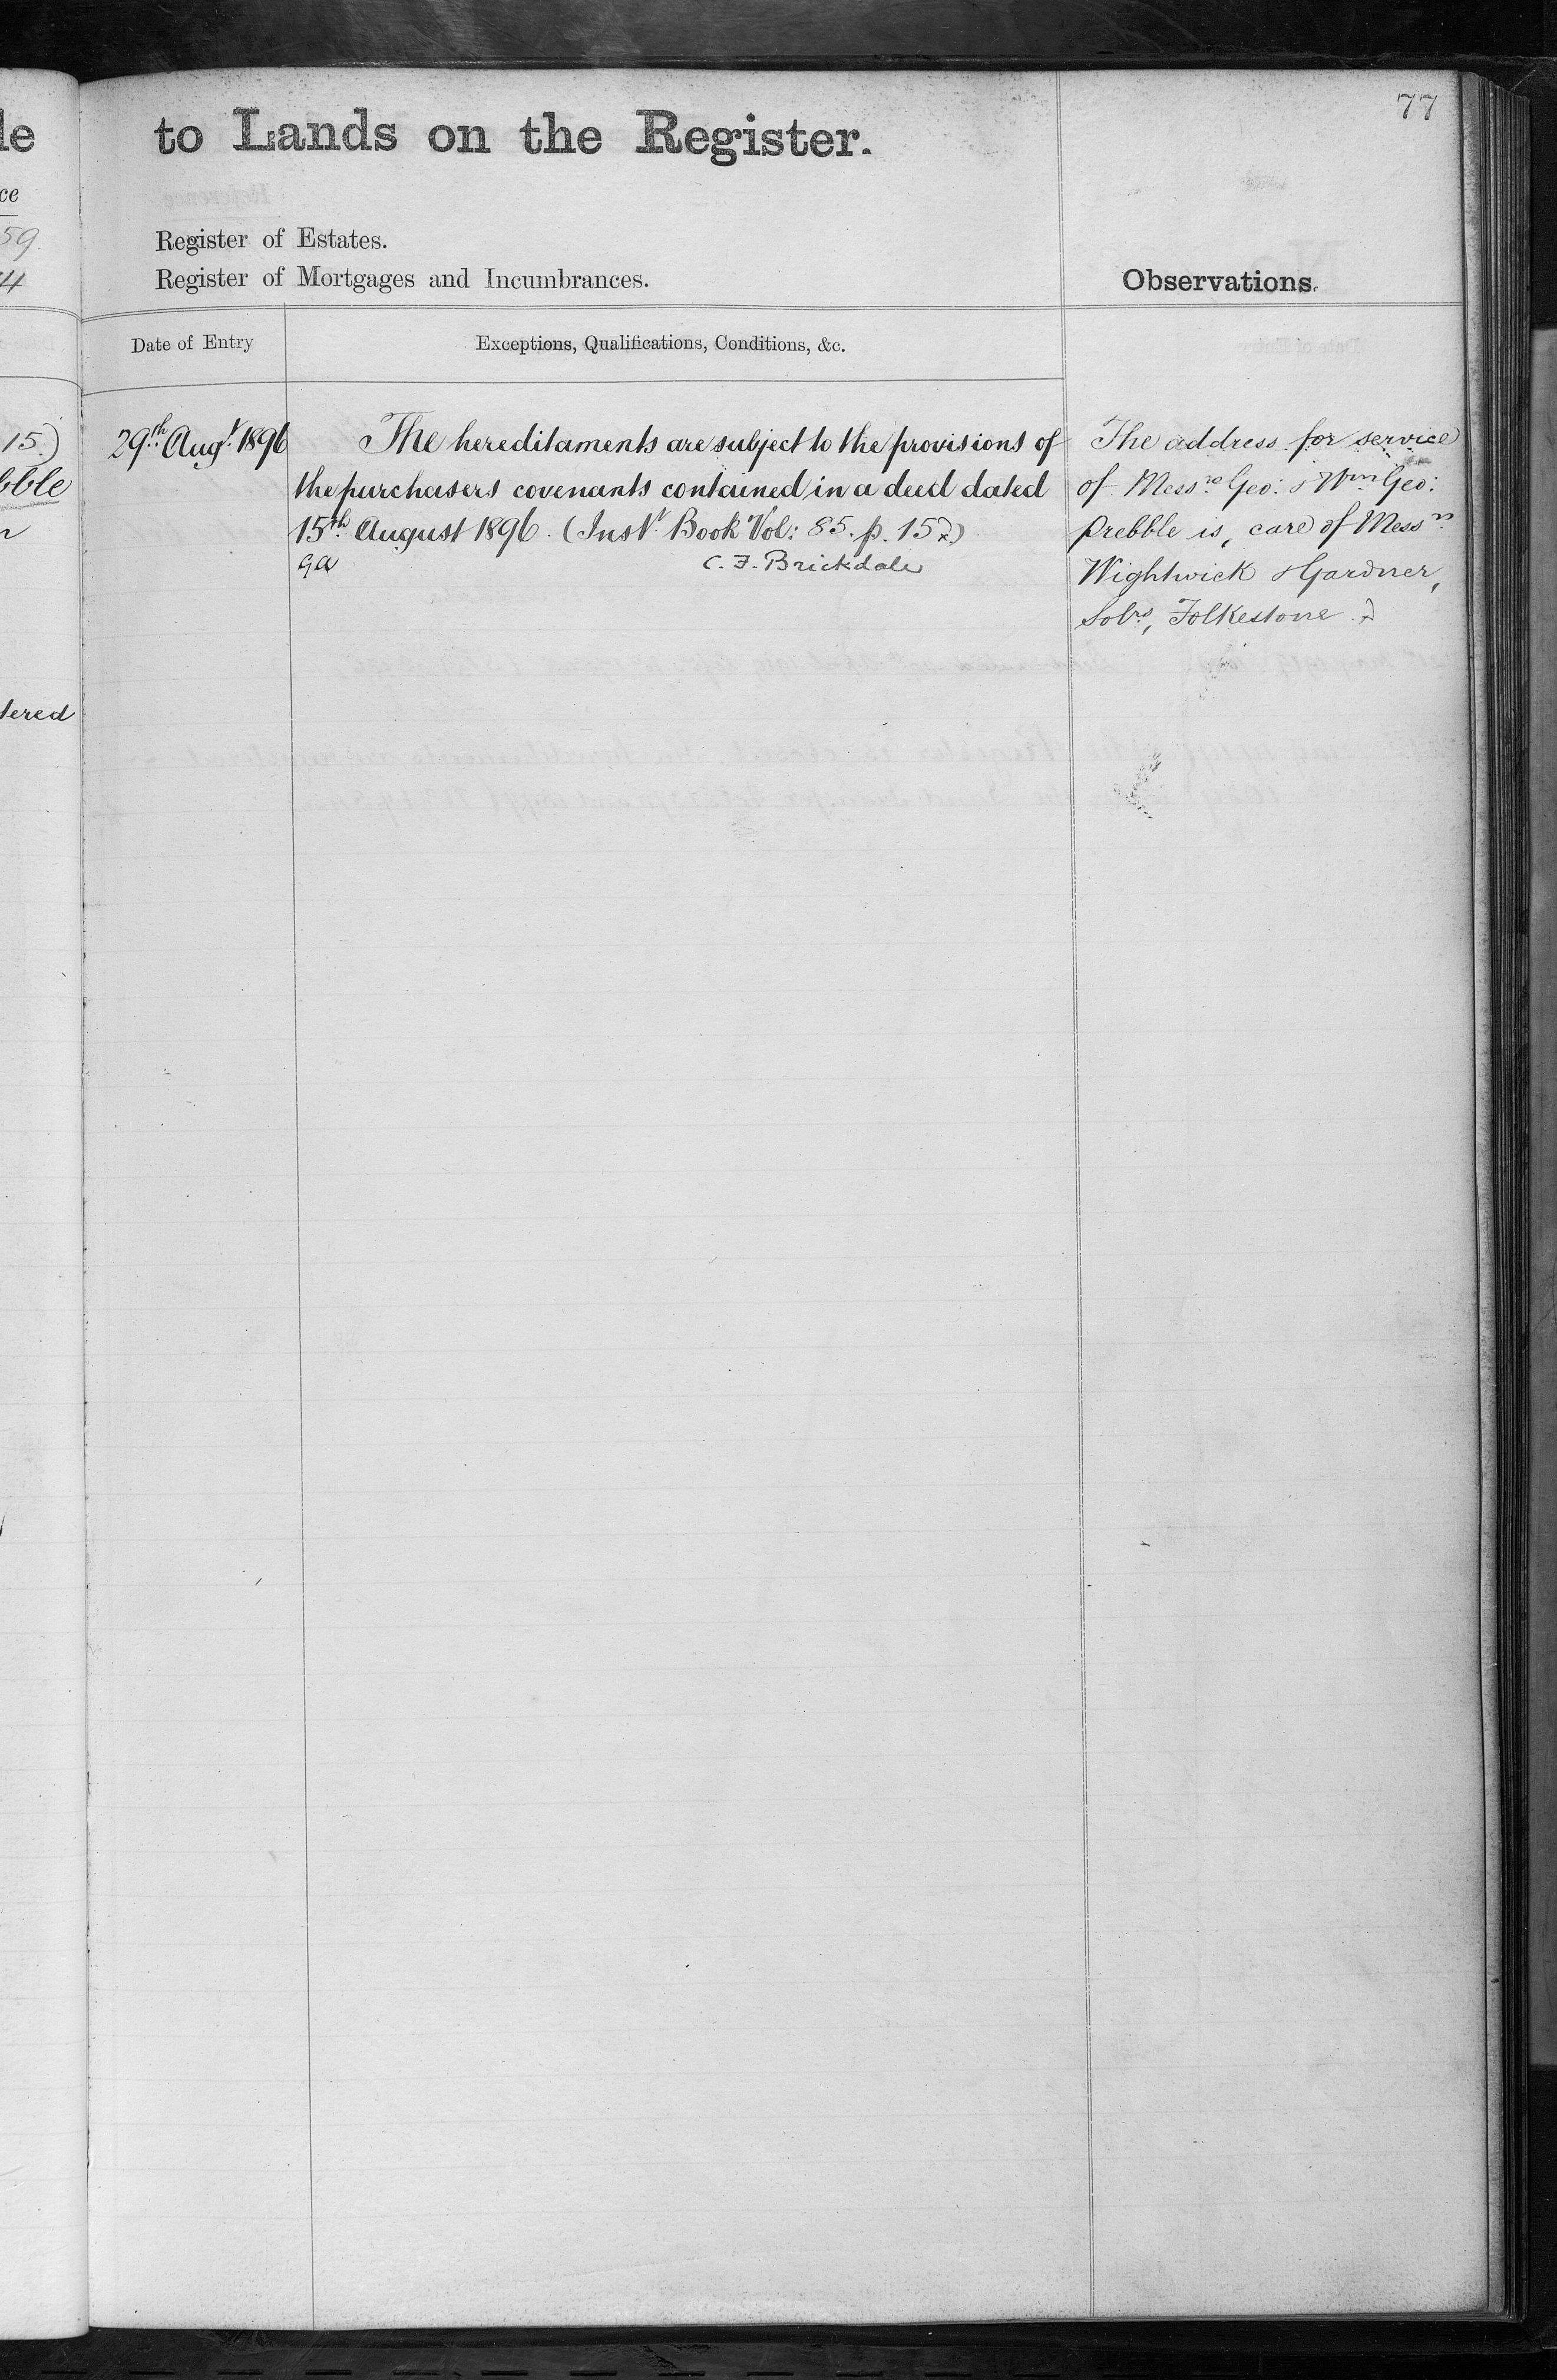 77
to Lands on the Register.
Register of Estates.
Register of Mortgages and Incumbrances.
Observations.
Date of Entry
Exceptions, Qualifications, Conditions, &c.
29th Augt 1896
The hereditaments are subject to the provisions of
the purchasers covenants contained in a deed dated
15th August 1896. (Inst Book Vol: 85. p. 15)
C. F. Brickdale
The address for service
of Messrs Geo: & Wm Geo:
Prebble is, care of Messrs
Wightwick & Gardner,
Solrs, Folkestone
le
ce
59.
4
15.)
bble
tered